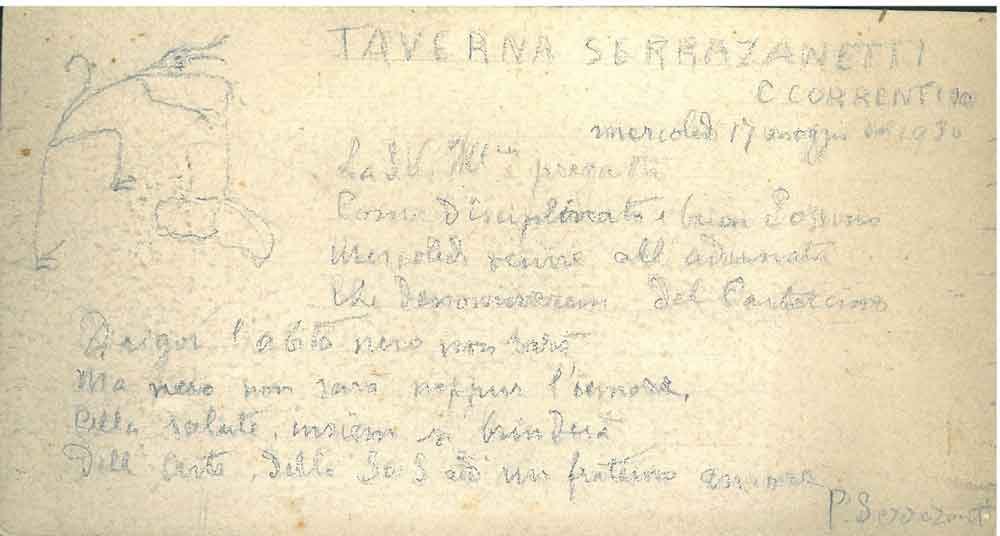 TAVERNA SERRAZANETTI
C CORRENTI
mercoledì 17 maggio 1930
La S.V. è pregata
Come disciplinato e buon
Mercoledì venire all adunata
che denomineremo del
Di rigor l'abito nero non sarà
Ma nero non sarà neppur l'umore,
Alla salute, insiem si brinderà
Dell'Arte, della ed'un fraterno amore
P. Serrazanetti